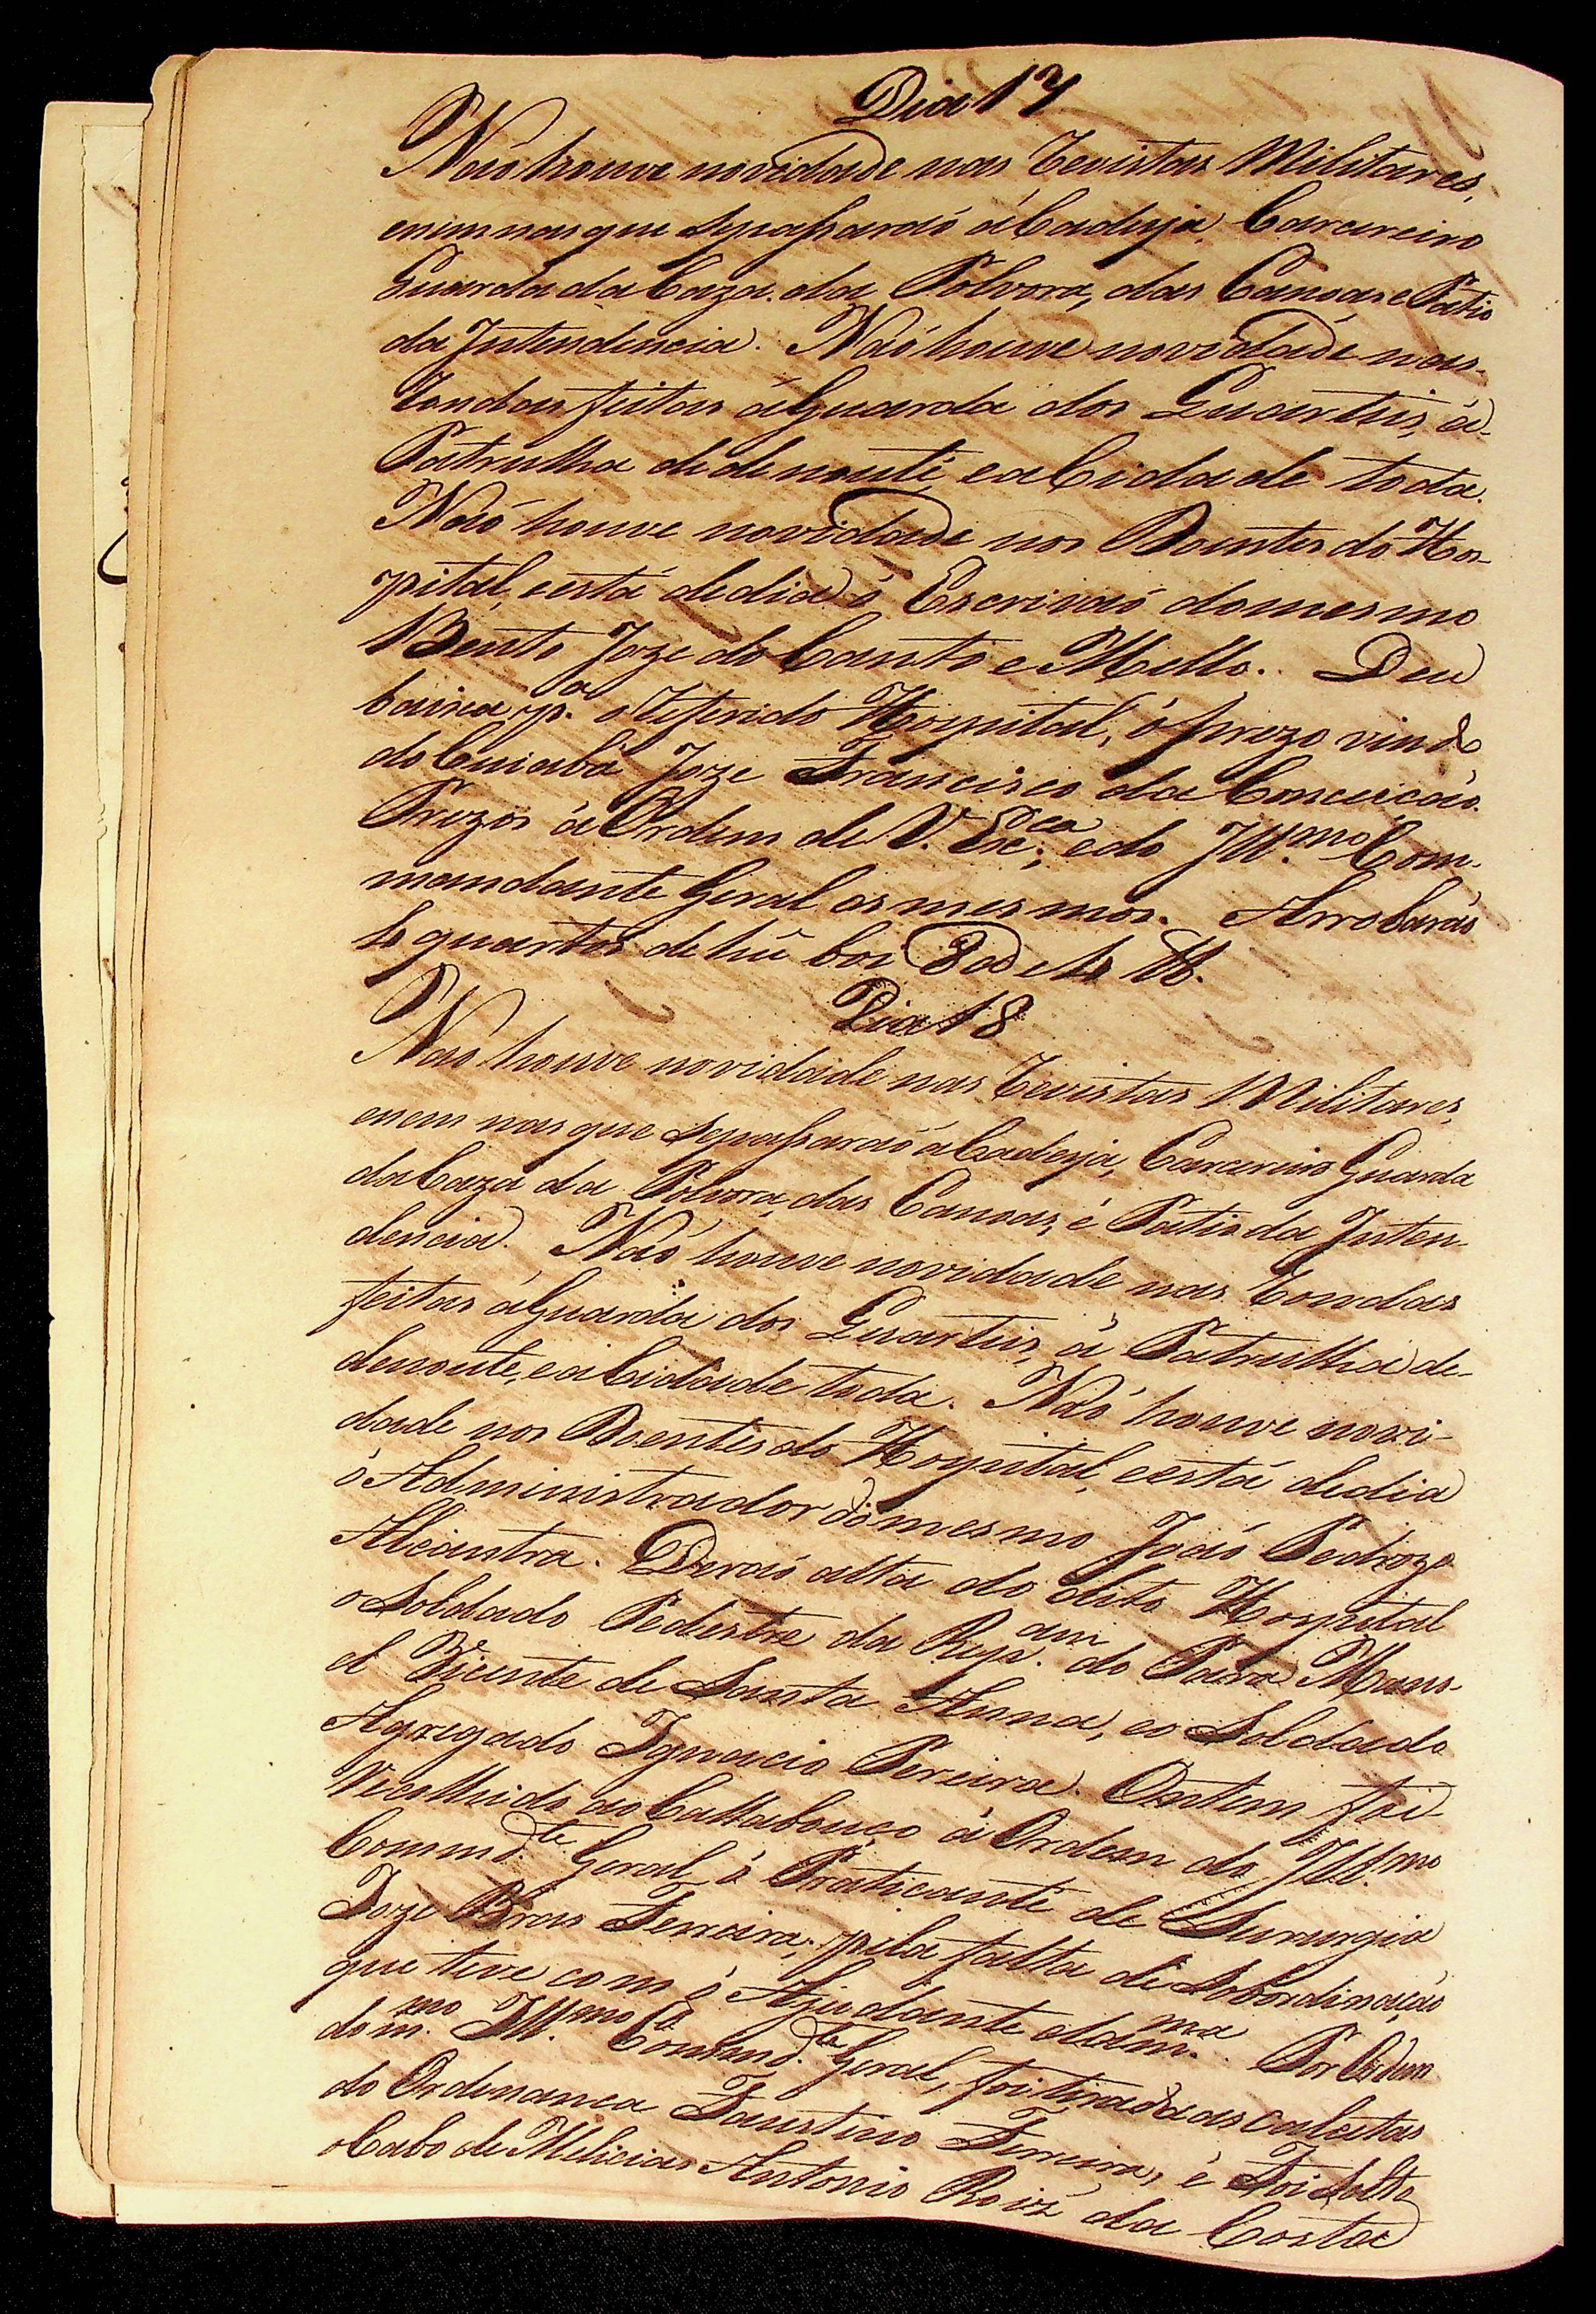 Dia 17
Naó houve novidade nas Revistas Militares,
enem nas que sepaßaraó áCadeya, Carcereiro
Guarda da Caza da Polvora, das Canoas, e Patio
da Intendencia. Naó houve novidade nas
Rondas feitas áGuarda dos Quarteis, á
Patrulha dedenoute, eaCidade toda.
Naó houve novidade nos Doentes do Hos-
pital, eestá dedia ó Escrivaó domesmo
Bento Joze do Canto e Mello. Deu
baixa p.ª o Referido Hospital, ó prezo vindo
do Cuiabá Joze Francisco da Conceicaó.
Prezos áOrdem de V. Exc.ca, edo Ill.mo Com-
mandante Geral os mesmos. Arrobaras
4 quartos de hũ boi 8@ e 14 ℔.
Dia 18
Naó houve novidade nas Revistas Militares,
enem nas que sepaßaraó aCadeya, Carcereiro Guarda
daCaza da Polvora, das Canoas, é Patio da Inten-
dencia. Naó houve novidade nas Rondas
feitas áGuarda dos Quarteis, á Patrulha de-
denoute, eaCidade toda. Naó houve novi-
dade nos Doentes do Hospital, eestá dedia
ó Administrador domesmo Joaó Pedrozo
Alcantra. Deraó alta do dito Hospital
o Soldado Pedestre da Rep.am do Pará Mano-
el Vicente de Santa Anna, eo Soldado
Agregado Ignacio Pereira. Ontem foi
Recolhido ao Callabouço á Ordem do Ill.mo
Command.te Geral, ó Praticante de Surugia
Joze Bras Ferreira, pela falta de Sobordinaçaó
que teve com ó Ajudante da m.ma. Por Ordem
do m.mo Ill.mo Command.te Geral, foi tirada as calcetas
do Ordenanca Faustino Ferreira, é Foi Solto
oCabo de Milicias Antonio Roiz da Costa